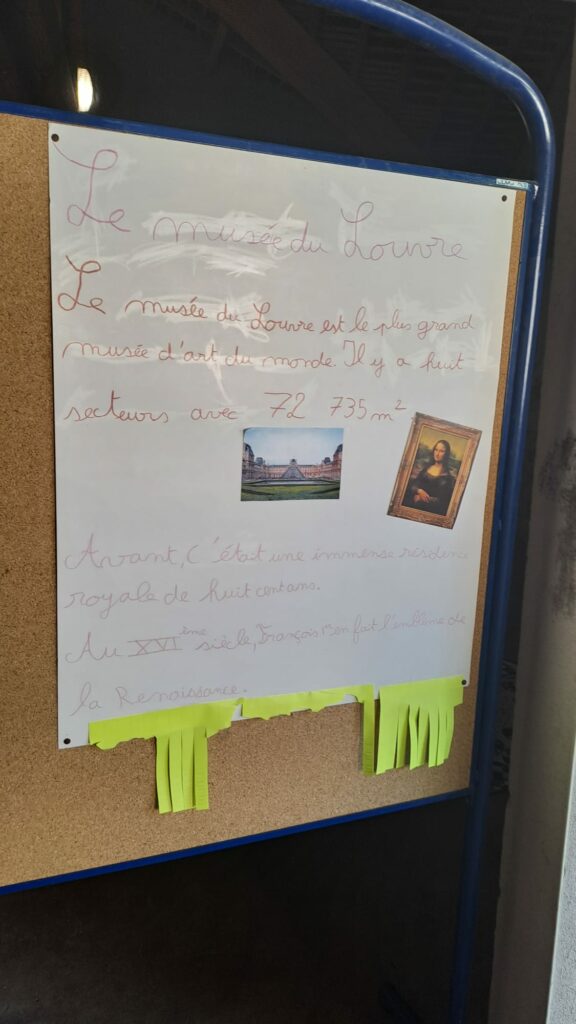 Le musée du Louvre
Le musée du Louvre est le plus grand
musée d'art du monde. Il y a huit
secteurs avec 72 735 m²
Avant, c'était une immense résidence
royale de huit cent ans.
Au XVI ème siècle, François 1er en fait l'emblème de
la Renaissance.